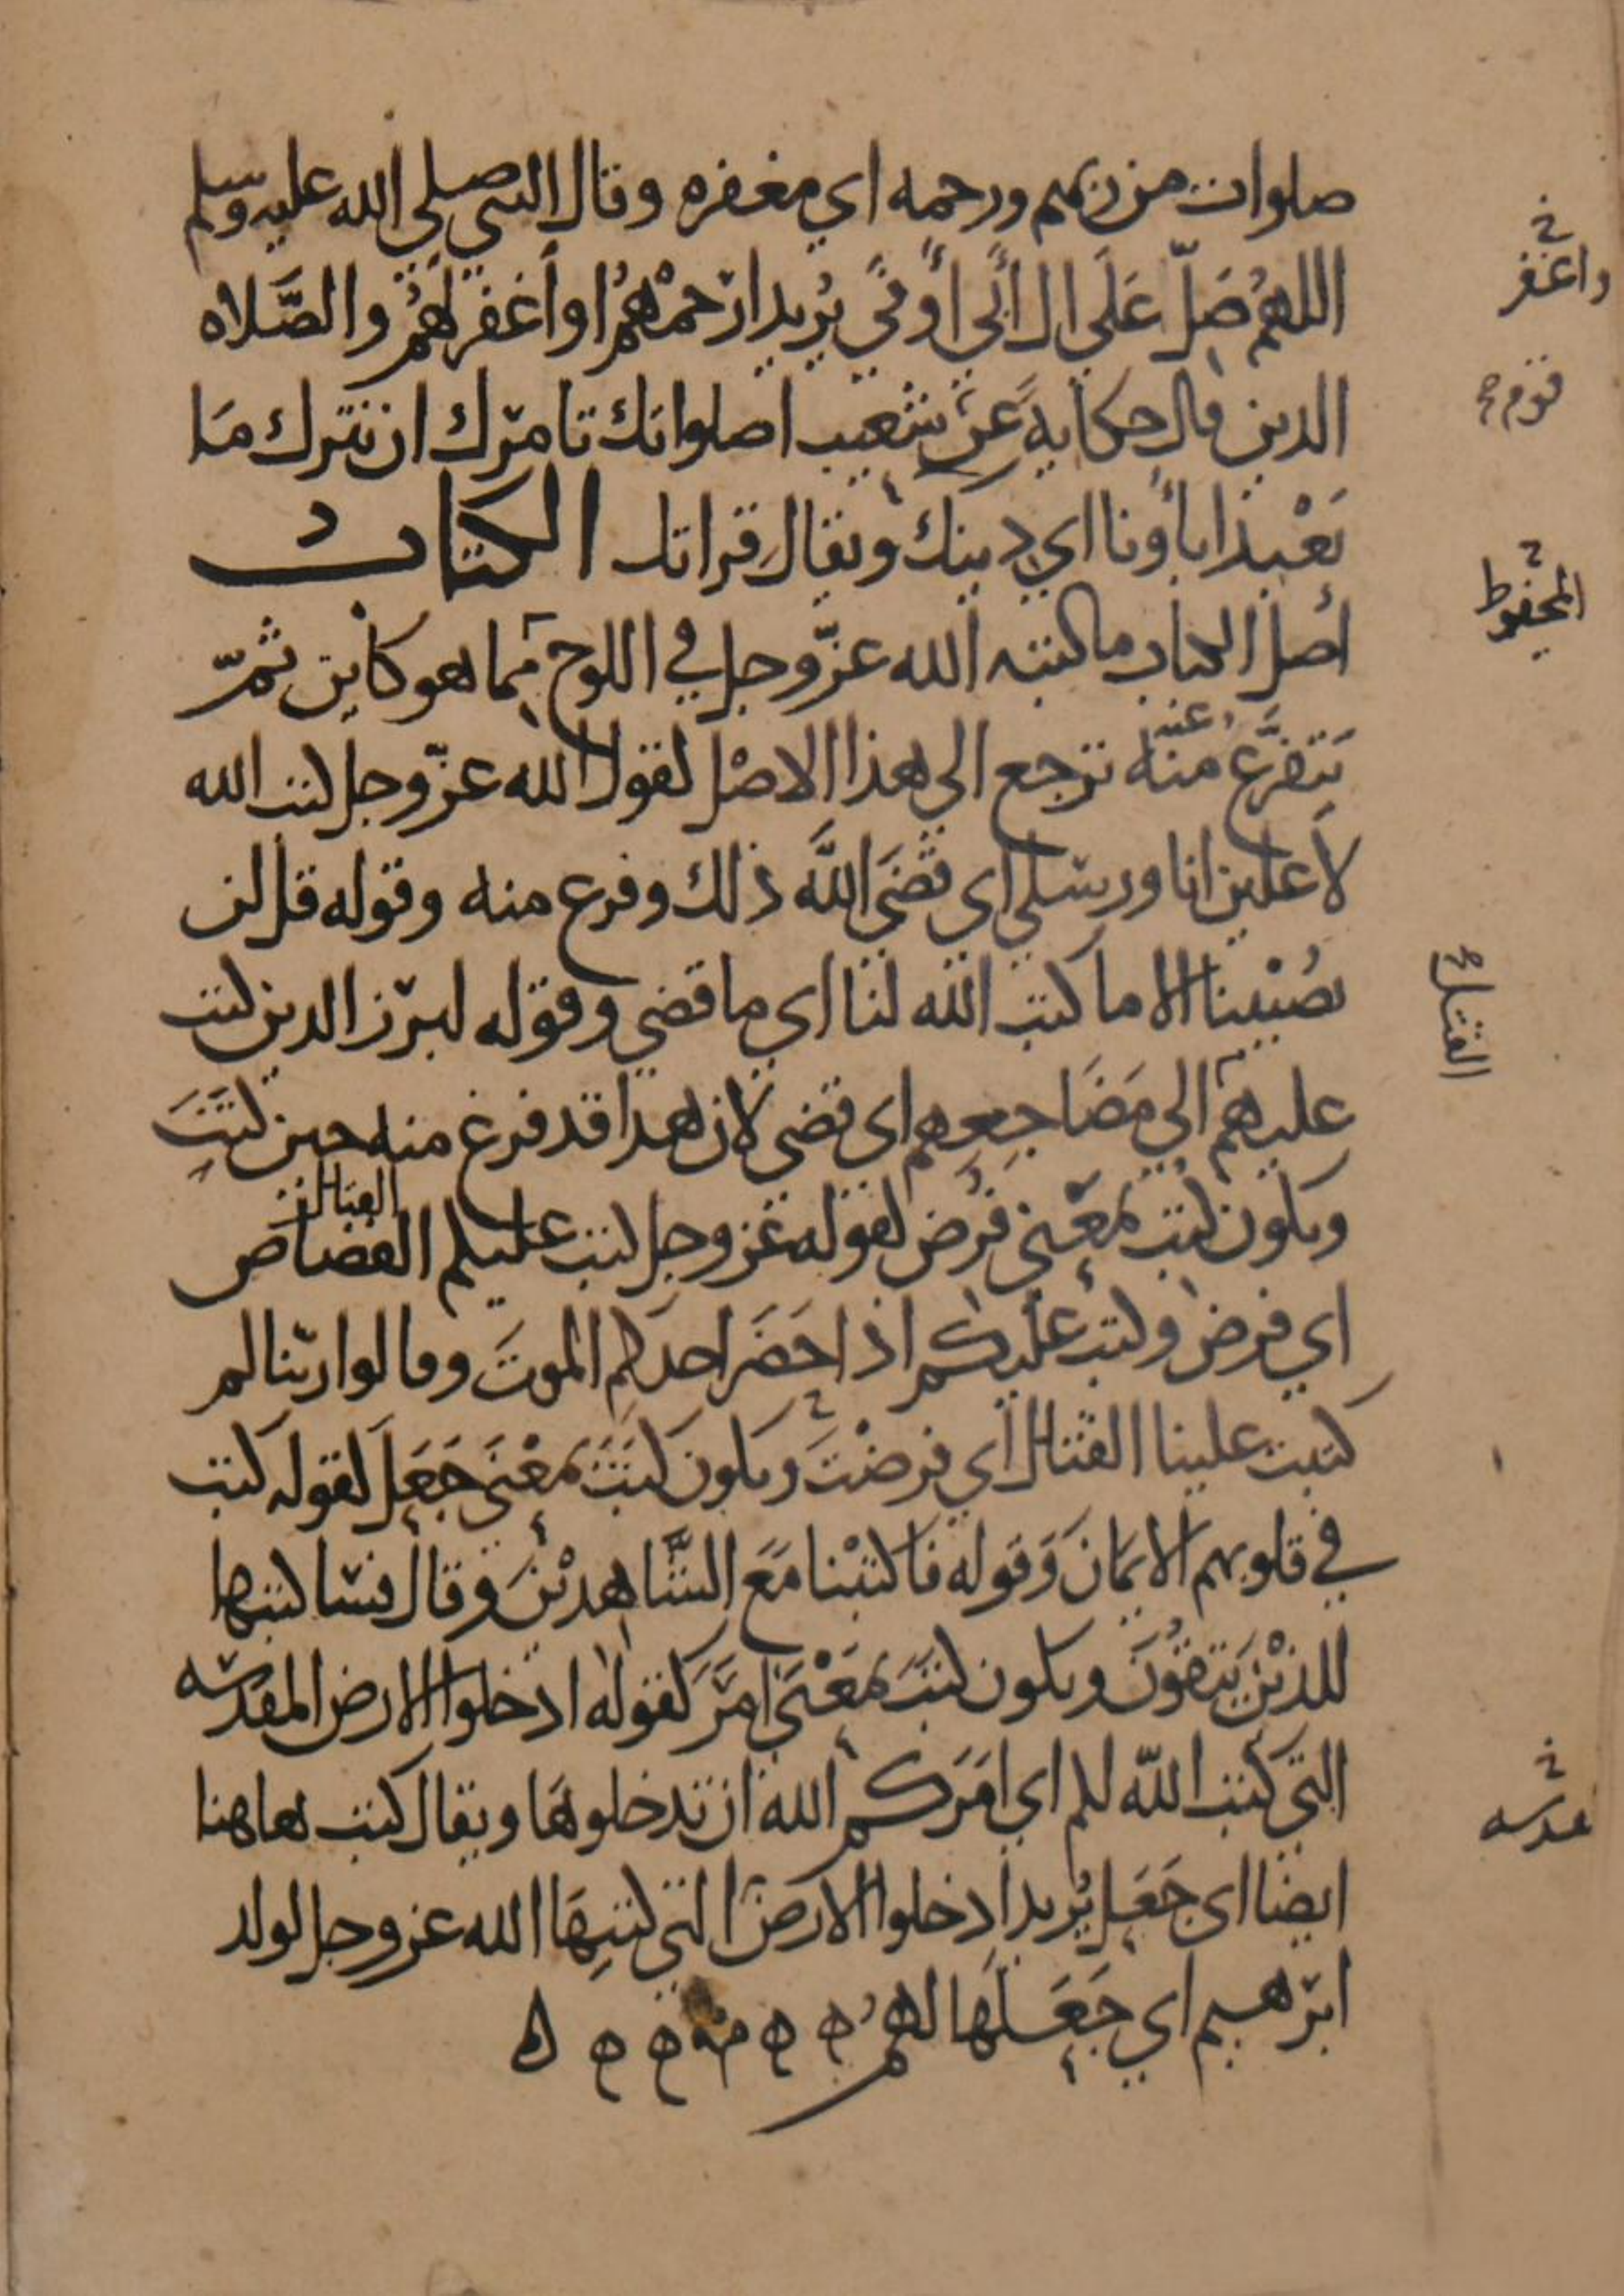 صلوات من ربهم ورحمه اي مغفره وقال النبي صلي الله عليه وسلم
اللهم صَلّ عَلَي ال أبي أوفي يُريد ارحمْهُم او أغفر لهُم والصَّلاه
الدين قال حكايةً عن شعيب اصلواتك تامرك ان نترك مَا
يَعْبد اباؤنا اي دينك ويقال قراتك الكتاب
أصل الكتاب ما كتبه الله عزّ وجل في اللوح مما هو كاين ثمّ
يَتفرَّع منه عنه ترجع الي هذا الاصْل لقول الله عزّ وجل كتب الله
لأغلبن انا ورسلي اي قضَي اللَّه ذلك وفرغ منه وقوله قل لن
يُصيْبنا الا ما كتب الله لنا اي ما قضي وقوله لبرز الدين كتب
عليهم الي مَضَاجِعِهم اي قضي لان هدا قد فرغ منه حين كَتَبَ
ويكون كتب بمعْني فرض لقوله عز وجل كتب عليكم القصاص القتال
اي فرض وكتب عليكم اذا حَضَر احدكم الموتَ وقالوا ربنا لم
كتبت علينا القتال اي فرضْتَ ويكون كَتَبَ بمعْنَي جَعَلَ لقوله كتب
في قلوبهم الايمانَ وَقوله فاكتبْنا مَعَ الشَّاهدينَ وقال فسأكتبها
للذيْن يَتقُوْنَ ويكون كتبَ بمَعْنَي امَرَ كقوله ادخلوا الارض المقدسه
التي كتب اللّه لكم اي امَرَكم الله ان تدخلوهَا ويقال كتب هاهنا
ايضا اي جَعَل يُريد ادخلوا الارضَ التي كتبهَا الله عز وجل لولد
ابرهيم اي جَعَلَها لهُم
واغفر
قوم
المحفوظ
القتل